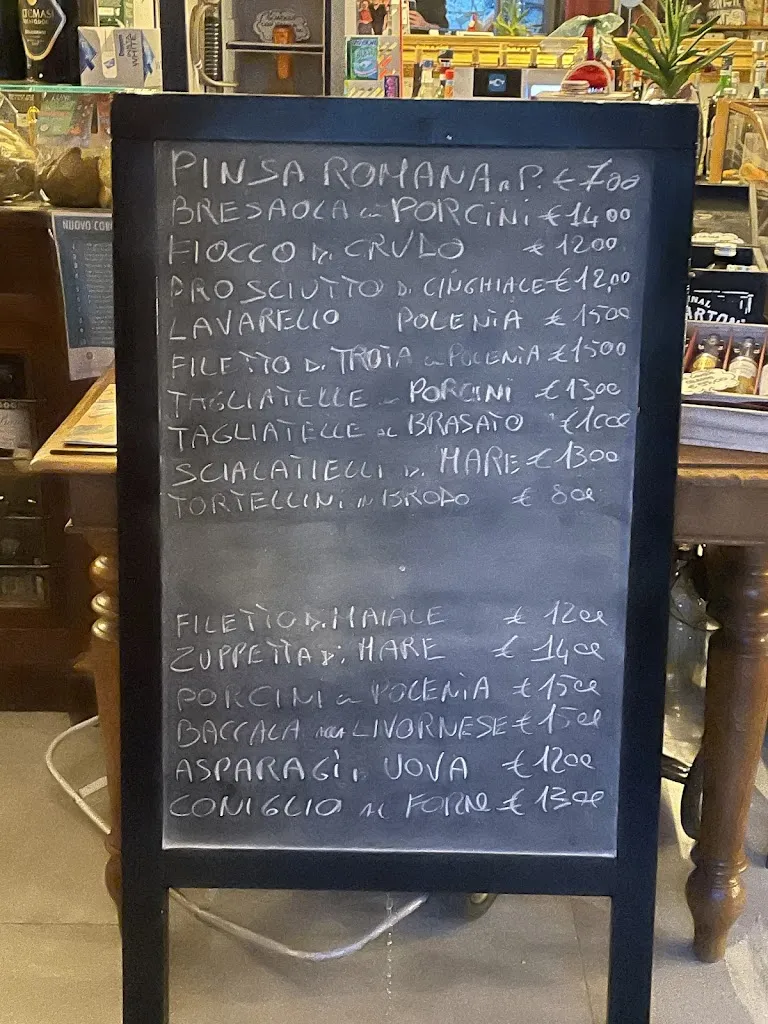 PINSA ROMANA A P. € 700
BRESAOLA PORCINI € 14 00
FIOCCO DI CRUDO € 1200
PROSCIUTTO DI CINGHIALE € 12,00
LAVARELLO POLENTA € 1500
FILETTO DI TROTA POLENTA € 1500
TAGLIATELLE PORCINI € 1300
TAGLIATELLE AL BRASATO
SCIALATIELLI DI MARE € 1300
TORTELLINI IN BRODO € 800
FILETTO DI MAIALE € 1200
ZUPPETTA DI MARE € 1400
PORCINI POLENTA € 1500
BACCALA ALLA LIVORNESE € 1500
ASPARAGI UOVA € 1200
CONIGLIO AL FORNO € 1300
NUOVO